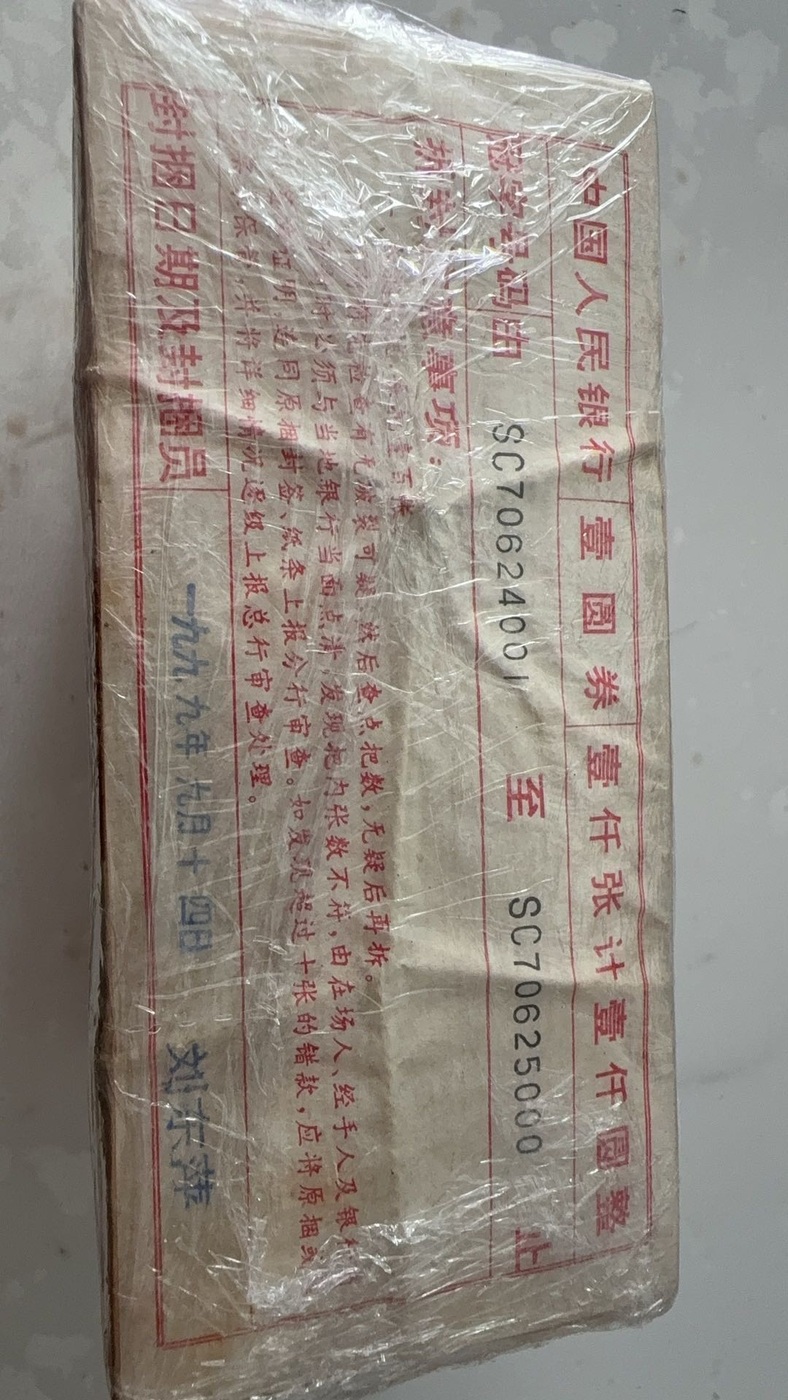 中国人民银行 壹圆券 壹仟张计壹仟圆整
字号码由 SC70624001 至 SC70625000 止
意事项：
壹百张
情况检查有无破裂可疑，然后查点把数，无疑后再拆。
时必须与当地银行当面点清，发现把内张数不符，由在场人、经手人及银
证明，连同原捆封签、纸条上报分行审查。如发现超过十张的错款，应将原捆或
保管，并将详细情况逐级上报总行审查处理。
封捆日期及封捆员 一九九九年九月十四日 刘东萍